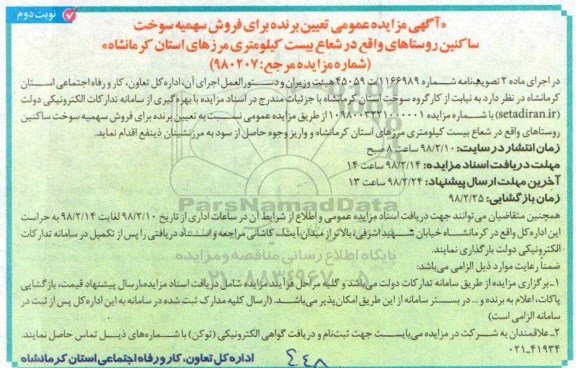 نوبت دوم
«آگهی مزایده عمومی تعیین برنده برای فروش سهمیه سوخت
ساکنین روستاهای واقع در شعاع بیست کیلومتری مرزهای استان کرمانشاه»
(شماره مزایده مرجع: ۹۸۰۲۰۷)
در اجرای ماده ۲ تصویبنامه شماره ۱۱۶۶۹۸۹/ت ۴۵۰۵۹ هیئت وزیران و دستورالعمل اجرای آن، اداره کل تعاون، کار و رفاه اجتماعی استان
کرمانشاه در نظر دارد به نیابت از کارگروه سوخت استان کرمانشاه با جزئیات مندرج در اسناد مزایده با بهره گیری از سامانه تدارکات الکترونیکی دولت
(setadiran.ir) با شماره مزایده ۱۰۹۸۰۰۳۳۲۱۰۰۰۰۰۱ از طریق مزایده عمومی نسبت به تعیین برنده برای فروش سهمیه سوخت ساکنین
روستاهای واقع در شعاع بیست کیلومتری مرزهای استان کرمانشاه و واریز وجوه حاصل از سود به مرزنشینان ذینفع اقدام نماید.
زمان انتشار در سایت: ۹۸/۲/۱۰ ساعت ۸ صبح
مهلت دریافت اسناد مزایده: ۹۸/۲/۱۴ ساعت ۱۴
آخرین مهلت ارسال پیشنهاد: ۹۸/۲/۲۴ ساعت ۱۳
زمان بازگشایی: ۹۸/۲/۲۵
همچنین متقاضیان می‌توانند جهت دریافت اسناد مزایده عمومی و اطلاع از شرایط آن در ساعات اداری از تاریخ ۹۸/۲/۱۰ لغایت ۹۸/۲/۱۴ به حراست
این اداره کل واقع در کرمانشاه خیابان شهید اشرفی، بالاتر از میدان آیت‌ا... کاشانی مراجعه و اسناد دریافتی را پس از تکمیل در سامانه تدارکات
الکترونیکی دولت بارگذاری نمایند.
ضمناً رعایت موارد ذیل الزامی می‌باشد:
۱ـ برگزاری مزایده از طریق سامانه تدارکات دولت می‌باشد و کلیه مراحل فرآیند مزایده شامل دریافت اسناد مزایده، ارسال پیشنهاد قیمت، بازگشایی
پاکات، اعلام به برنده و ... در بستر سامانه از این طریق امکان‌پذیر می‌باشد. (ارسال کلیه مدارک ثبت شده در سامانه به این اداره کل پس از ثبت در
سامانه الزامی است)
۲ـ علاقمندان به شرکت در مزایده می‌بایست جهت ثبت‌نام و دریافت گواهی الکترونیکی (توکن) با شماره‌های ذیل تماس حاصل نمایند.
۰۲۱-۴۱۹۳۴
اداره کل تعاون، کار و رفاه اجتماعی استان کرمانشاه
ParsNamadData
پایگاه اطلاع رسانی مناقصه و مزایده